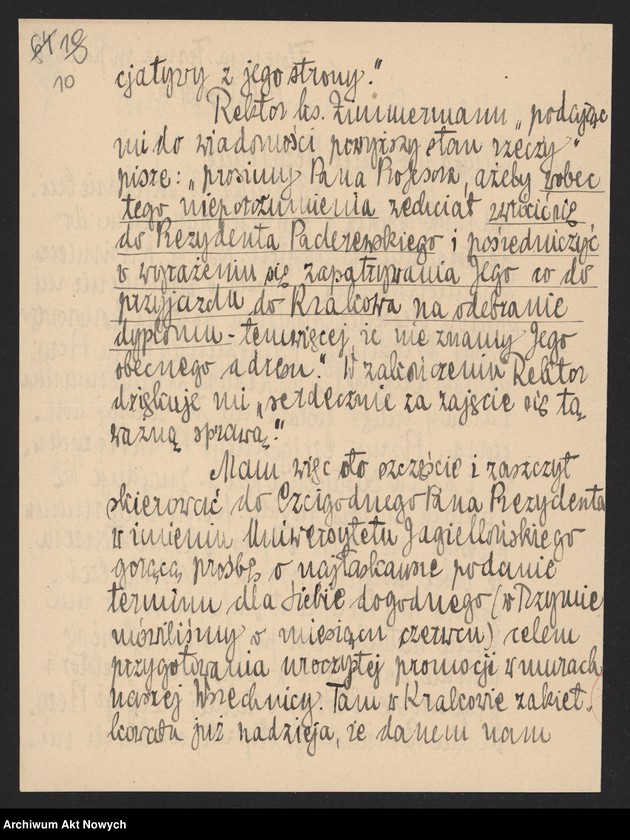 18
10
cjatywy z jego strony."
Rektor ks. Zimmermann „podając
mi do wiadomości powyższy stan rzeczy"
pisze: „prosimy Pana Profesora, ażeby wobec
tego nieporozumienia zechciał zwrócić się
do Prezydenta Paderewskiego i pośredniczyć
w wyrażeniu się zapatrywania Jego co do
przyjazdu do Krakowa na odebranie
dyplomu - temwięcej że nie znamy Jego
obecnego adresu." W zakończeniu Rektor
dziękuje mi „serdecznie za zajęcie się tą
ważną sprawą."
Mam więc oto szczęście i zaszczyt
skierować do Czcigodnego Pana Prezydenta
w imieniu Uniwersytetu Jagiellońskiego
gorącą prośbę o najłaskawsze podanie
terminu dla Siebie dogodnego (w Rzymie
mówiliśmy o miesiącu czerwcu) celem
przygotowania uroczystej promocji w murach
naszej Wszechnicy. Tam w Krakowie zakieł-
kowała już nadzieja, że danem nam
Archiwum Akt Nowych